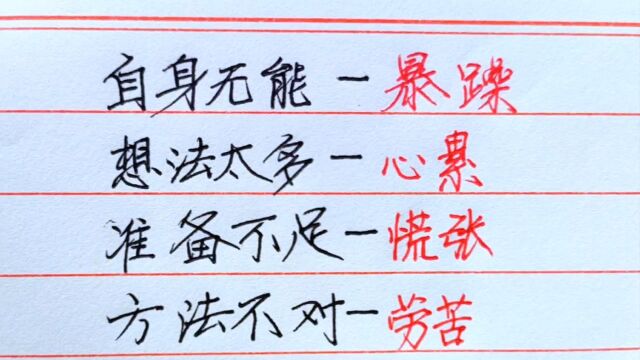 自身无能一暴躁
想法太多一心累
准备不足一慌张
方法不对一劳苦